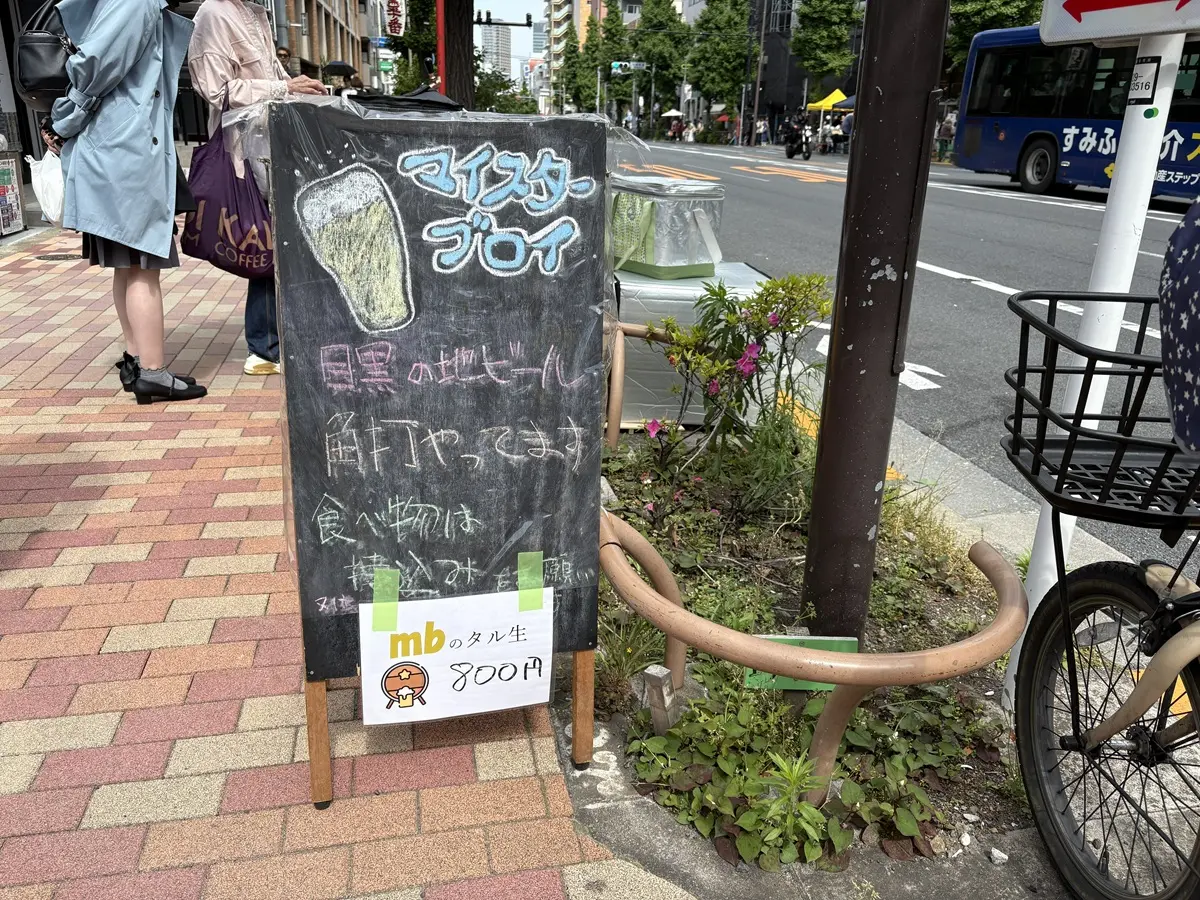 マイスター
ブロイ
目黒の地ビール
角打やってます
食べ物は
持込み
mbのタル生
800円
KAL
COFFEE
すみふ
介
産ステップ
3516